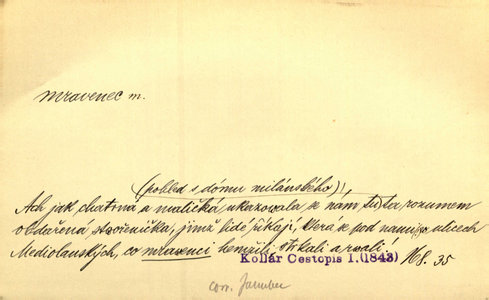 mravenec m.
(pohled s dómu milánského)!,
Ach jak chatrná a maličká ukazovala se nám tu ta rozumem
obdařená stvořeníčka, jimž lidé říkají, která se pod nami po ulicech
Mediolanských, co mravenci hemžili, strkali a rvali!
Kollár Cestopis I.(1843) 168. 35